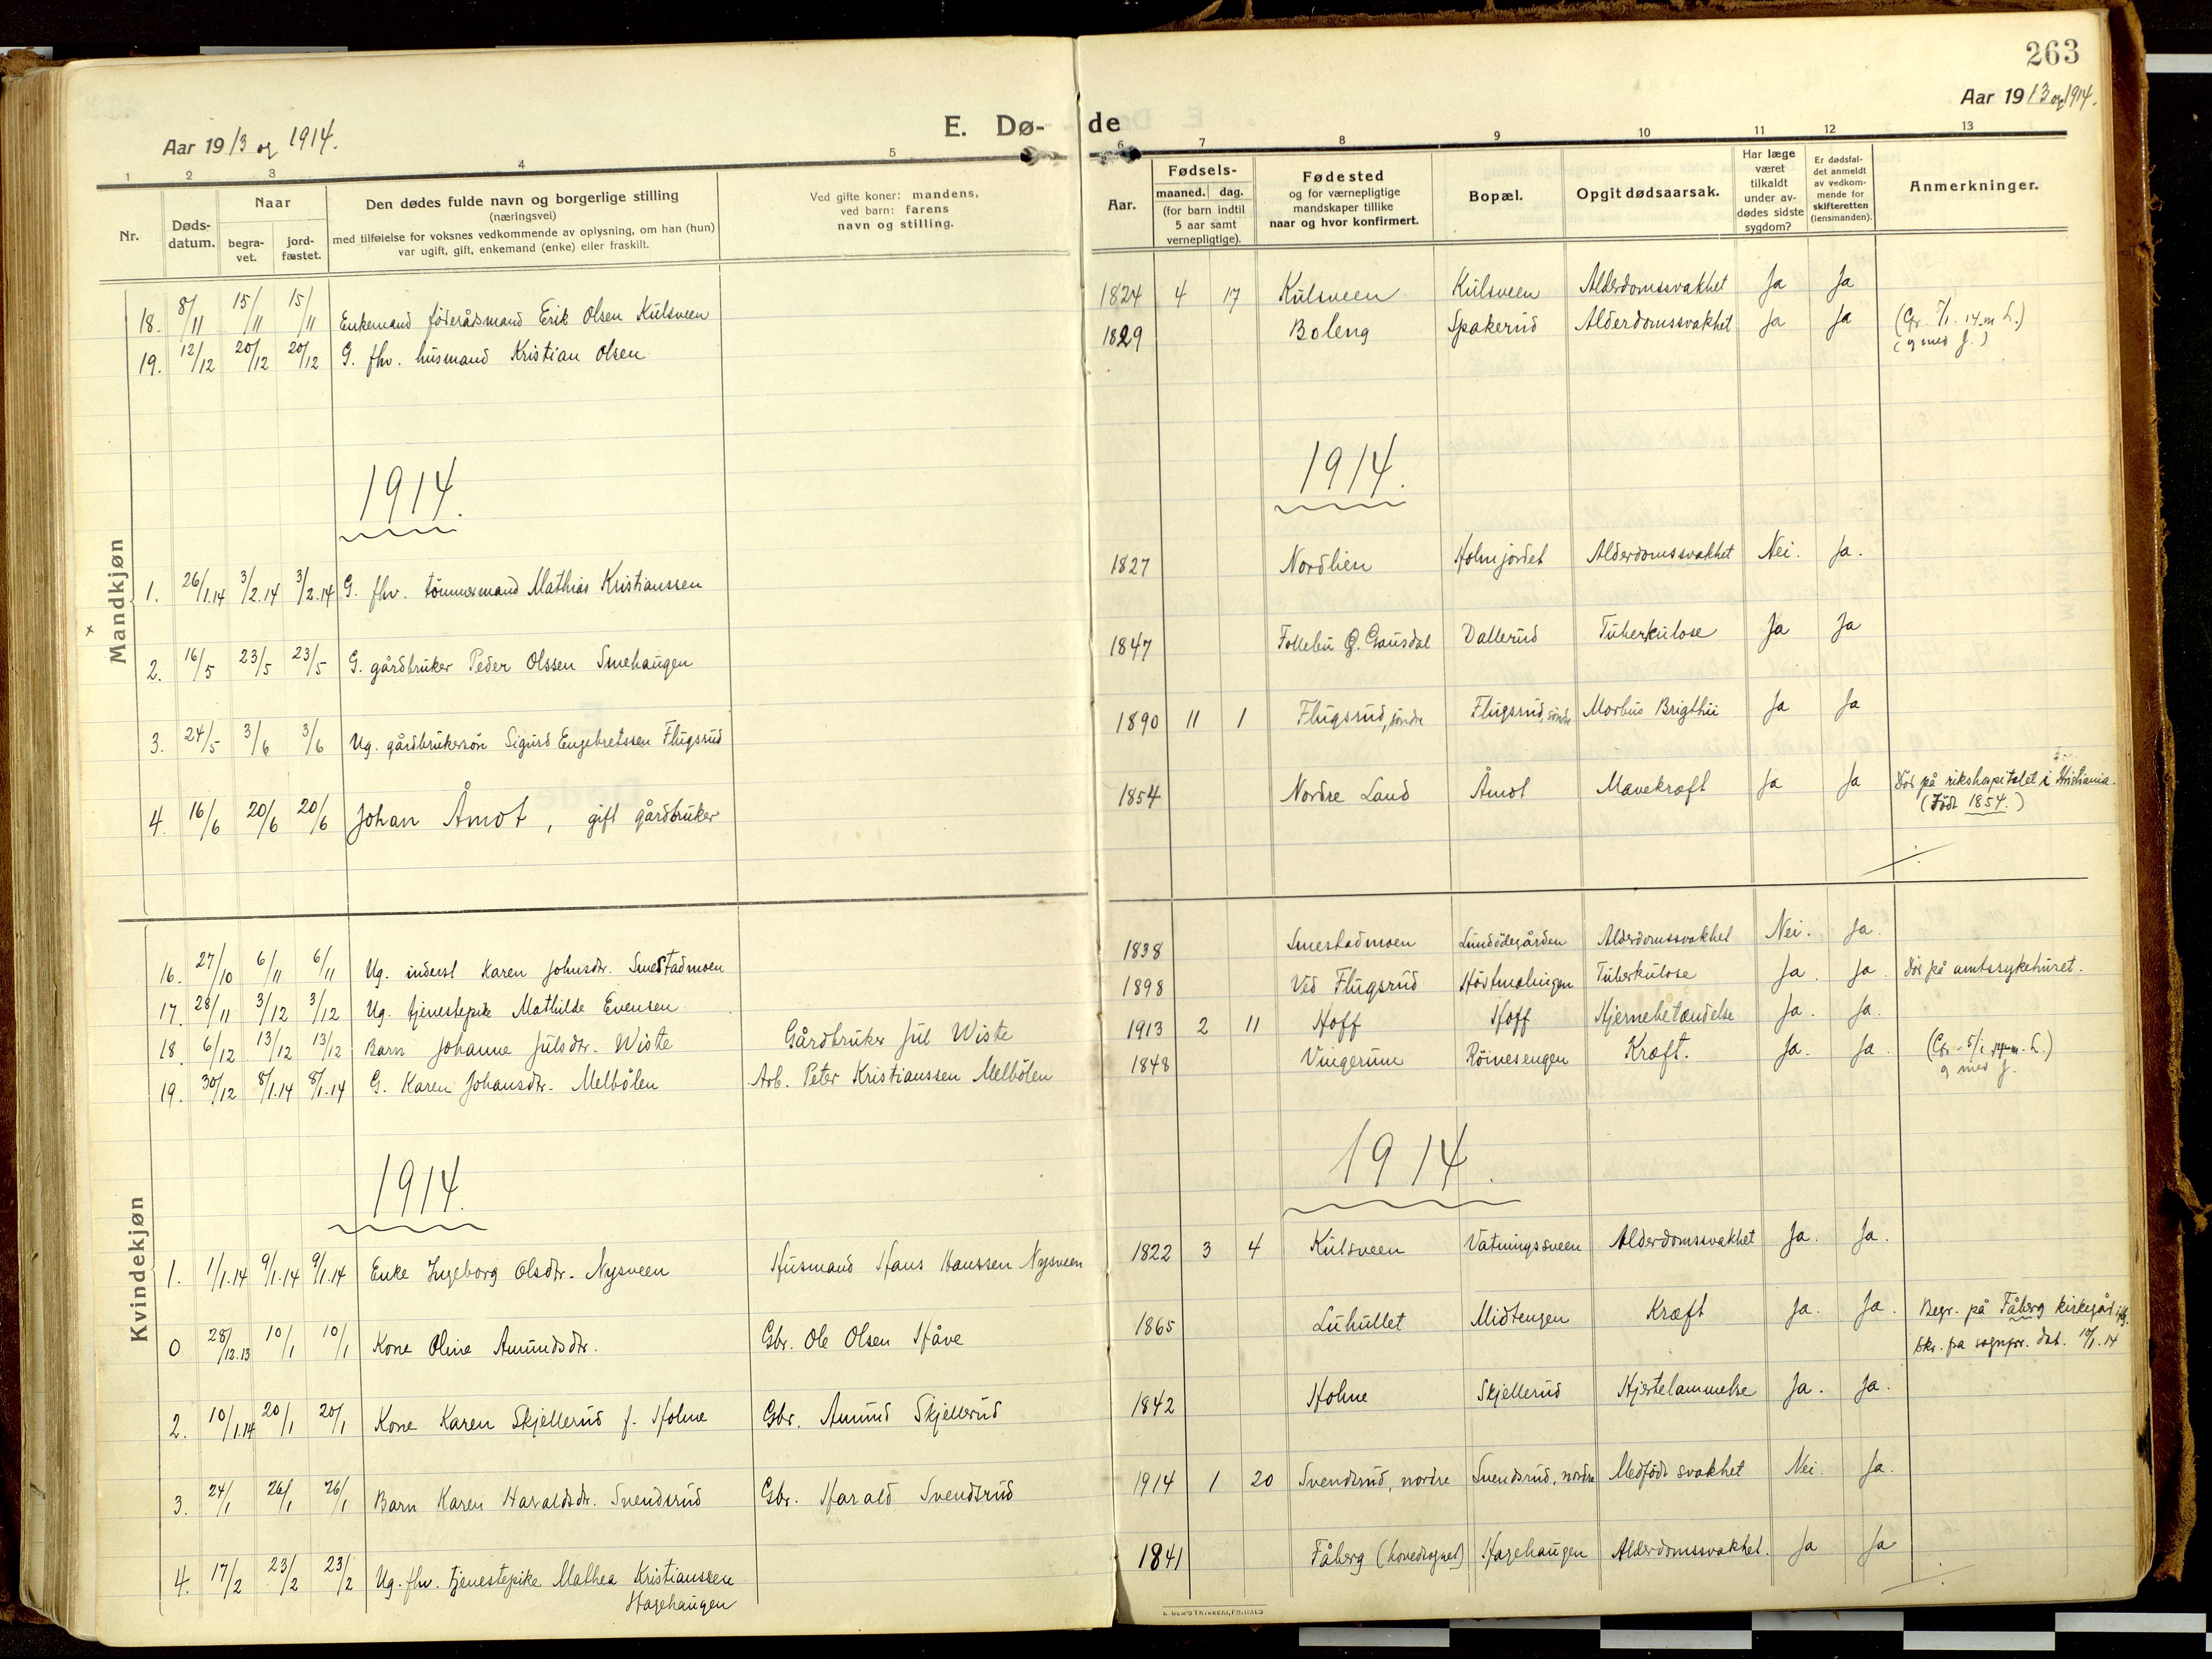 263
Aar 1913 og 1914.
E. Dø-
de
Aar 1913 og 1914.
1 2 3 4 5 6 7 8 9 10 11 12 13
Nr.
Døds-
datum.
Naar
begra-
vet.
jord-
fæstet.
Den dødes fulde navn og borgerlige stilling
(næringsvei)
med tilføielse for voksnes vedkommende av oplysning, om han (hun)
var ugift, gift, enkemand (enke) eller fraskilt.
Ved gifte koner: mandens,
ved barn: farens
navn og stilling.
Aar.
Fødsels-
maaned. dag.
(for barn indtil
5 aar samt
vernepligtige).
Fødested
og for værnepligtige
mandskaper tillike
naar og hvor konfirmert.
Bopæl.
Opgit dødsaarsak.
Har læge
været
tilkaldt
under av-
dødes sidste
sygdom?
Er dødsfal-
det anmeldt
av vedkom-
mende for
skifteretten
(lensmanden).
Anmerkninger.
Mandkjøn
18. 8/11 15/11 15/11 Enkemand føderådsmand Erik Olsen Kulsveen 1824 4 17 Kulsveen Kulsveen Alderdomssvakhet Ja Ja
19. 12/12 20/12 20/12 G. fhv. husmand Kristian Olsen 1829 Boleng Spakerud Alderdomssvakhet Ja Ja
1914. 1914.
1. 26/1.14 3/2.14 3/2.14 G. fhv. tömmermand Mathias Kristianssen 1827 Nordlien Holmjordet Alderdomssvakhet Nei. Ja.
2. 16/5 23/5 23/5 G. gårdbruker Peder Olssen Smehaugen 1847 Follebu Gausdal Dallerud Tuberkulose Ja Ja
3. 24/5 3/6 3/6 Ug. gårdbrukersön Sigurd Engebretssen Flugsrud 1890 11 1 Flugsrud, söndre Flugsrud, söndre Morbus Brigthii Ja Ja
4. 16/6 20/6 20/6 Johan Åmot, gift gårdbruker 1854 Nordre Land Åmot Mavekræft Ja Ja Död på rikshospitalet i Kristiania.
(Födt 1854.)
Kvindekjøn
16. 27/10 6/11 6/11 Ug. inderst Karen Johnsdtr. Smestadmoen 1838 Smestadmoen Lundödegården Alderdomssvakhet Nei. Ja.
17. 28/11 3/12 3/12 Ug. tjenestepike Mathilde Evensen 1898 Ved Flugsrud Tuberkulose Ja. Ja. Död på amtssykehuset.
18. 6/12 13/12 13/12 Barn Johanne Julsdtr. Wiste Gårdbruker Jul Wiste 1913 2 11 Hoff Hoff Hjernebetændelse Ja. Ja.
19. 30/12 8/1.14 8/1.14 G. Karen Johansdtr. Melbölen Arb. Peter Kristianssen Melbölen 1848 Vingerum Röinesengen Kræft. Ja. Ja.
1914. 1914.
1. 1/1.14 9/1.14 9/1.14 Enke Ingeborg Olsdtr. Nysveen Husmand Hans Hanssen Nysveen 1822 3 4 Kulsveen Vatningssveen Alderdomssvakhet Ja. Ja.
0 28/12.13 10/1 10/1 Kone Oline Amundsdtr. Gbr. Ole Olsen Håve 1865 Luhullet Midtengen Kræft Ja. Ja. Begr. på Fåberg kirkegård iflg.
skr. fra sognepr. dat. 10/1.14
2. 10/1.14 20/1 20/1 Kone Karen Skjellerud f. Holme Gbr. Amund Skjellerud 1842 Holme Skjellerud Hjertelammelse Ja. Ja.
3. 24/1 26/1 26/1 Barn Karen Haraldsdtr. Svendsrud Gbr. Harald Svendsrud 1914 1 20 Svendsrud, nordre Svendsrud, nordre Medfödt svakhet Nei. Ja.
4. 17/2 23/2 23/2 Ug. fhv. tjenestepike Mathea Kristianssen 1841 Fåberg (hovedsognet) Hagehaugen Alderdomssvakhet. Ja Ja
Hagehaugen